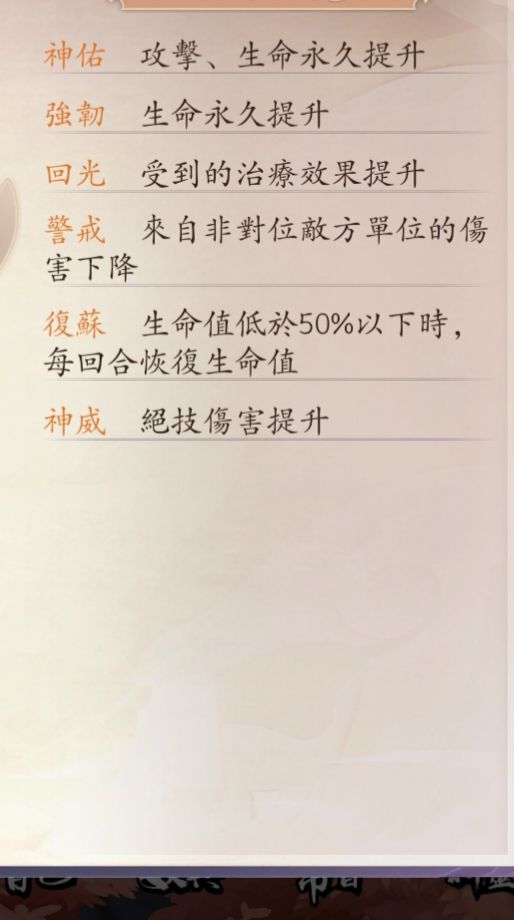 神佑 攻擊、生命永久提升
強韌 生命永久提升
回光 受到的治療效果提升
警戒 來自非對位敵方單位的傷
害下降
復蘇 生命值低於50%以下時，
每回合恢復生命值
神威 絕技傷害提升